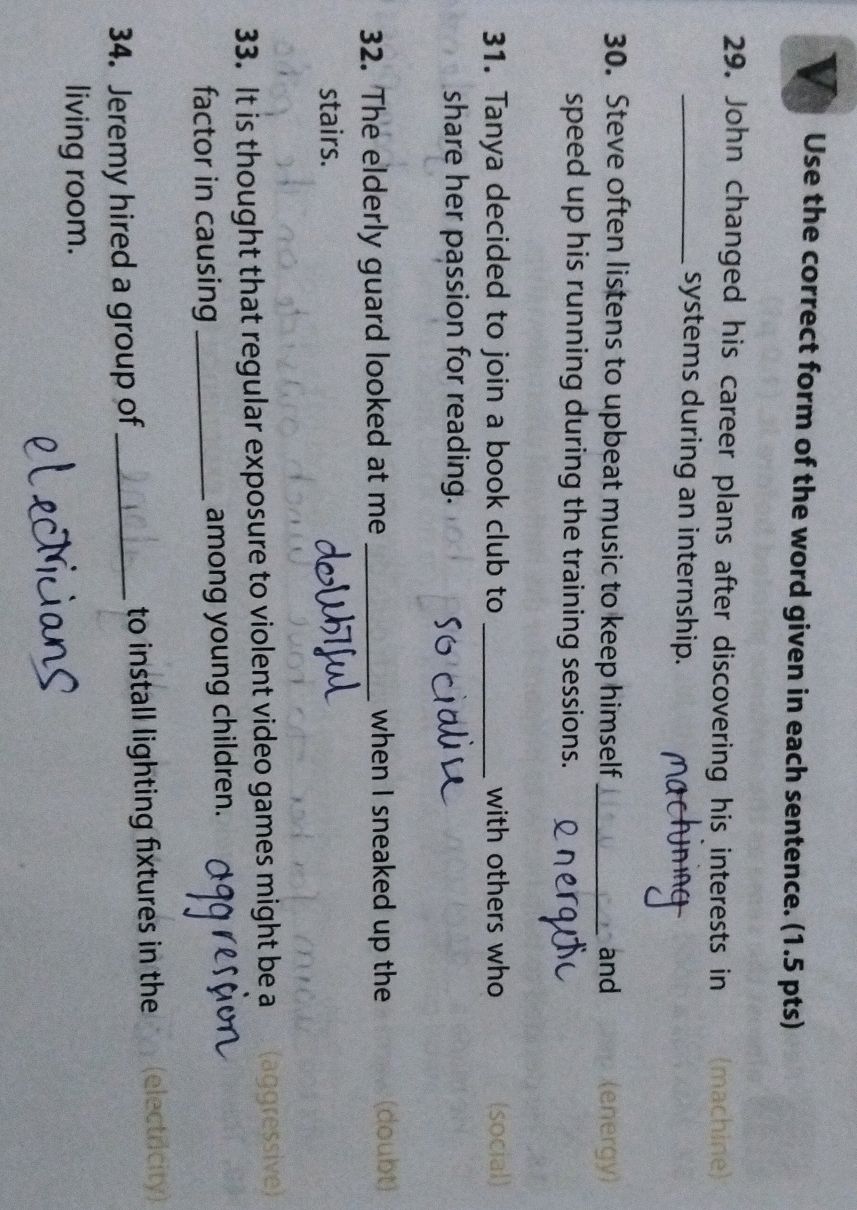 V Use the correct form of the word given in each sentence. (1.5 pts)
29. John changed his career plans after discovering his interests in (machine)
________ systems during an internship. machining
30. Steve often listens to upbeat music to keep himself ________ and (energy)
speed up his running during the training sessions. energetic
31. Tanya decided to join a book club to ________ with others who (social)
share her passion for reading. socialise
32. The elderly guard looked at me ________ when I sneaked up the (doubt)
stairs. doubtful
33. It is thought that regular exposure to violent video games might be a (aggressive)
factor in causing ________ among young children. aggression
34. Jeremy hired a group of ________ to install lighting fixtures in the (electricity)
living room.
electricians